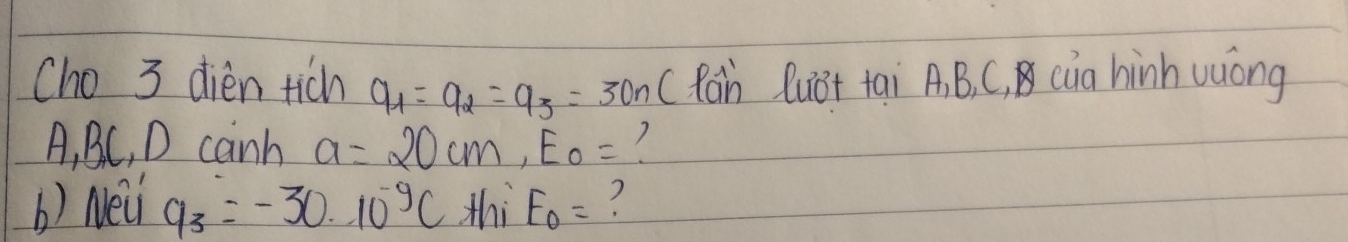 Cho 3 điện tích q1 = q2 = q3 = 30nC lần lượt tại A,B,C, của hình vuông
A,B,C,D cạnh a = 20 cm, E0 = ?
b) Nếu q3 = -30. 10^-9C thì E0 = ?